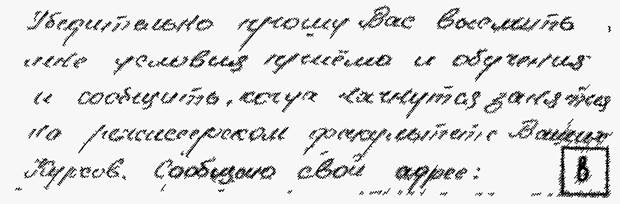 Убедительно прошу Вас выслать
мне условия приёма и обучения
и сообщить, когда начнутся занятия
на режиссерском факультете Ваших
Курсов. Сообщаю свой адрес:
в